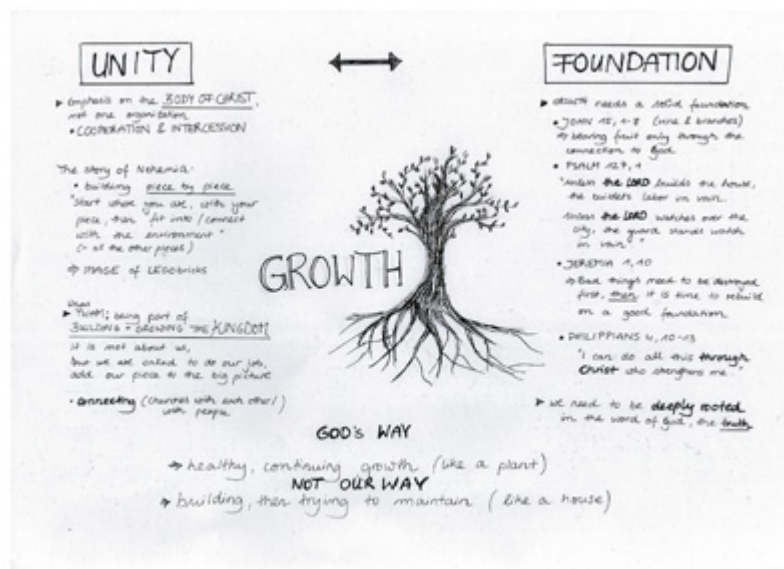 UNITY
▸ Emphasis on the BODY OF CHRIST,
not one organization
• COOPERATION & INTERCESSION
The story of Nehemia:
• building piece by piece
"Start where you are, with your
piece, then fit into / connect
with the environment"
(= all the other pieces)
⇒ IMAGE of LEGObricks
being part of
BUILDING + GROWING THE KINGDOM
it is not about us,
but we are called to do our job,
add our piece to the big picture
• connecting (churches with each other /
with people
GROWTH
FOUNDATION
▸ GROWTH needs a solid foundation
• JOHN 15, 1-8 (vine & branches)
⇒ bearing fruit only through the
connection to God
• PSALM 127, 1
"Unless the LORD builds the house,
the builders labor in vain.
Unless the LORD watches over the
city, the guard stands watch
in vain."
• JEREMIA 1, 10
⇒ Bad things need to be destroyed
first, then it is time to rebuild
on a good foundation
• PHILIPPIANS 4, 10-13
"I can do all this through
Christ who strengthens me."
▸ we need to be deeply rooted
in the word of God, the truth
GOD'S WAY
⇒ healthy, continuing growth (like a plant)
NOT OUR WAY
⇒ building, then trying to maintain (like a house)